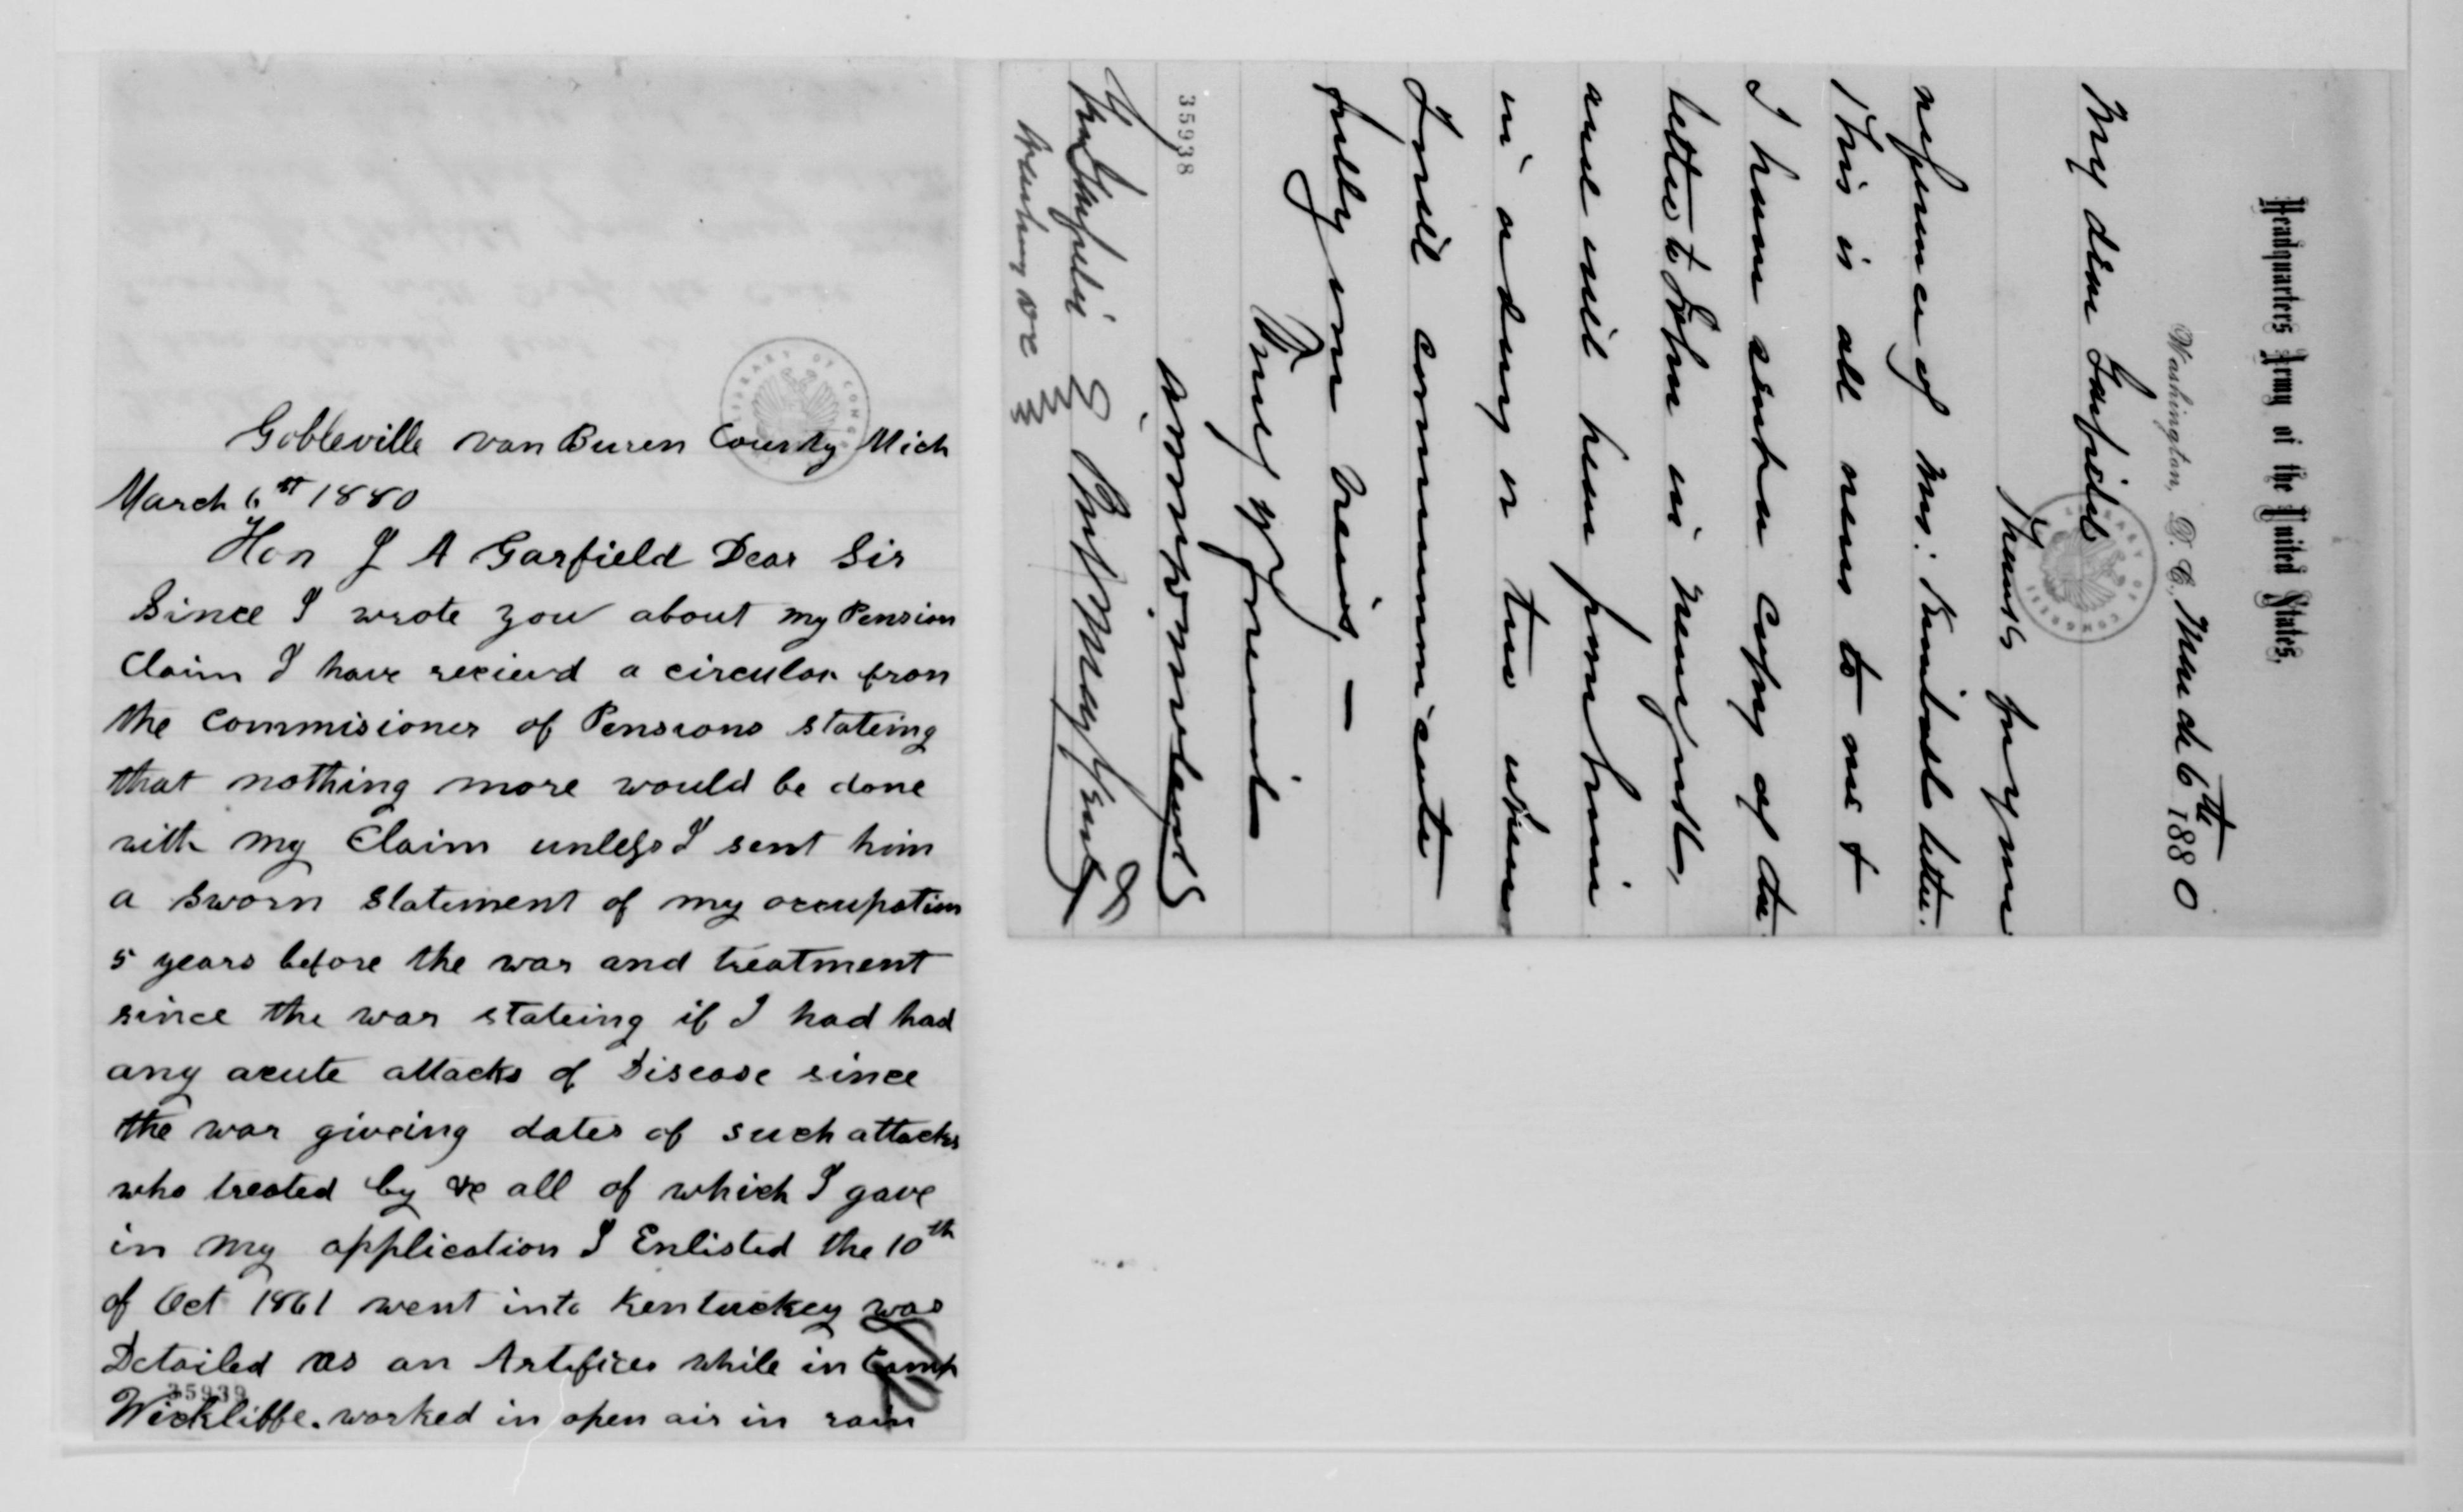 Gobleville Van Buren County Mich
March 6st 1880
Hon J A Garfield Dear Sir
Since I wrote you about my Pension
Claim I have recievd a circular from
the Commisioner of Pensions stateing
that nothing more would be done
with my Claim unless I sent him
a Sworn Statement of my occupation
5 years before the war and treatment
since the war stateing if I had had
any acute attacks of Disease since
the war giveing dates of such attacks
who treated by &c all of which I gave
in my application I Enlisted the 10th
of Oct 1861 went into Kentuckey was
Detailed as an Artificer while in Camp
Wickliffe. worked in open air in rain
35939
Headquarters Army of the United States,
Washington, D. C., March 6th 1880
My dear Garfield
Thanks for your
reference of Mrs: Kimball's letter.
This is all news to me &
I have sent a copy of the
letter to John in New York,
and will hear from him
in a day or two when
I will communicate
fully my views, —
Your friend
35938
Washington DC